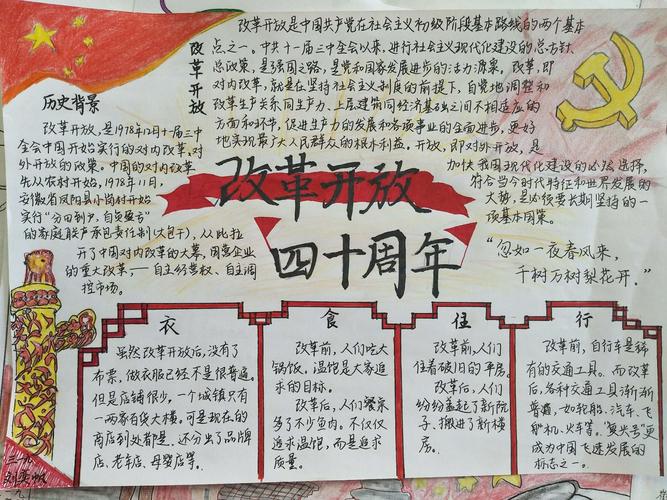 改革开放
改革开放是中国共产党在社会主义初级阶段基本路线的两个基本
点之一。中共十一届三中全会以来，进行社会主义现代化建设的总方针、
总政策，是强国之路，是党和国家发展进步的活力源泉。改革，即
对内改革，就是在坚持社会主义制度的前提下，自觉地调整和
改革生产关系同生产力、上层建筑同经济基础之间不相适应的
方面和环节，促进生产力的发展和各项事业的全面进步，更好
地实现最广大人民群众的根本利益。开放，即对外开放，是
加快我国现代化建设的必然选择，
符合当今时代特征和世界发展的
大势，是必须要长期坚持的一
项基本国策。
历史背景
改革开放，是1978年12月十一届三中
全会中国开始实行的对内改革，对
外开放的政策。中国的对内改革
先从农村开始，1978年11月，
安徽省凤阳县小岗村开始
实行“分田到户，自负盈亏”
的家庭联产承包责任制（大包干），从此拉
开了中国对内改革的大幕，国营企业
的重大改革，——自主经营权、自主调
控市场。
改革开放
四十周年
“忽如一夜春风来，
千树万树梨花开。”
衣
虽然改革开放后，没有了
布票，做衣服已经不是很普遍。
但是店铺很少，一个城镇只有
一两家百货大楼。可是现在的
商店到处都是，还分出了品牌
店、老年店、母婴店等。
食
改革前，人们吃大
锅饭，温饱是大家追
求的目标。
改革后，人们餐桌
多了不少鱼肉。不仅仅
追求温饱，而是追求
质量。
住
改革前，人们
住着破旧的平房。
改革后，人们
纷纷盖起了新院
子，搬进了新楼
房。
行
改革前，自行车是稀
有的交通工具。而改革
后，各种交通工具渐渐
普遍，如轮船、汽车、飞
机、火车等。“复兴号”更
成为中国飞速发展的
标志之一。